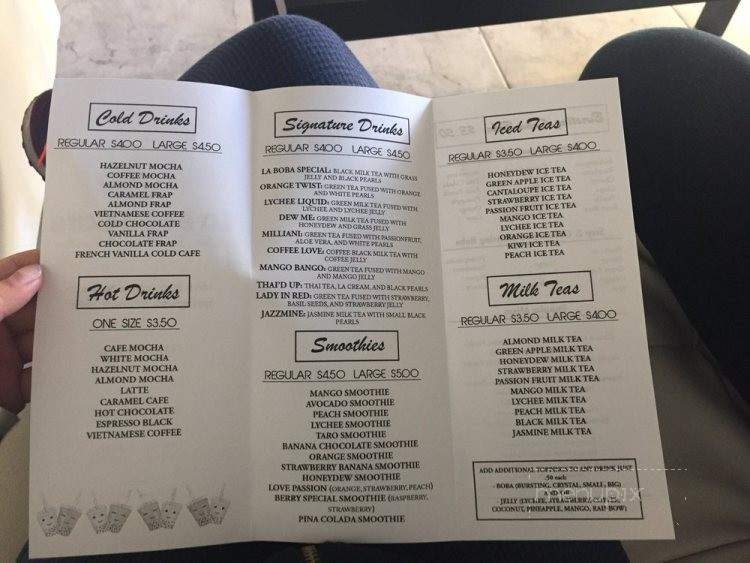 Cold Drinks
REGULAR $4.00 LARGE $4.50
HAZELNUT MOCHA
COFFEE MOCHA
ALMOND MOCHA
CARAMEL FRAP
ALMOND FRAP
VIETNAMESE COFFEE
COLD CHOCOLATE
VANILLA FRAP
CHOCOLATE FRAP
FRENCH VANILLA COLD CAFE
Hot Drinks
ONE SIZE $3.50
CAFE MOCHA
WHITE MOCHA
HAZELNUT MOCHA
ALMOND MOCHA
LATTE
CARAMEL CAFE
HOT CHOCOLATE
ESPRESSO BLACK
VIETNAMESE COFFEE
Signature Drinks
REGULAR $4.00 LARGE $4.50
LA BOBA SPECIAL: BLACK MILK TEA WITH GRASS
JELLY AND BLACK PEARLS
ORANGE TWIST: GREEN TEA FUSED WITH ORANGE
AND WHITE PEARLS
LYCHEE LIQUID: GREEN MILK TEA FUSED WITH
LYCHEE AND LYCHEE JELLY
DEW ME: GREEN MILK TEA FUSED WITH
HONEYDEW AND GRASS JELLY
MILLIANI: GREEN TEA FUSED WITH PASSIONFRUIT,
ALOE VERA, AND WHITE PEARLS
COFFEE LOVE: COFFEE BLACK MILK TEA WITH
COFFEE JELLY
MANGO BANGO: GREEN TEA FUSED WITH MANGO
AND MANGO JELLY
THAI'D UP: THAI TEA, LA CREAM, AND BLACK PEARLS
LADY IN RED: GREEN TEA FUSED WITH STRAWBERRY,
BASIL SEEDS, AND STRAWBERRY JELLY
JAZZMINE: JASMINE MILK TEA WITH SMALL BLACK
PEARLS
Smoothies
REGULAR $4.50 LARGE $5.00
MANGO SMOOTHIE
AVOCADO SMOOTHIE
PEACH SMOOTHIE
LYCHEE SMOOTHIE
TARO SMOOTHIE
BANANA CHOCOLATE SMOOTHIE
ORANGE SMOOTHIE
STRAWBERRY BANANA SMOOTHIE
HONEYDEW SMOOTHIE
LOVE PASSION (ORANGE, STRAWBERRY, PEACH)
BERRY SPECIAL SMOOTHIE (RASPBERRY,
STRAWBERRY)
PINA COLADA SMOOTHIE
Iced Teas
REGULAR $3.50 LARGE $4.00
HONEYDEW ICE TEA
GREEN APPLE ICE TEA
CANTALOUPE ICE TEA
STRAWBERRY ICE TEA
PASSION FRUIT ICE TEA
MANGO ICE TEA
LYCHEE ICE TEA
ORANGE ICE TEA
KIWI ICE TEA
PEACH ICE TEA
Milk Teas
REGULAR $3.50 LARGE $4.00
ALMOND MILK TEA
GREEN APPLE MILK TEA
HONEYDEW MILK TEA
STRAWBERRY MILK TEA
PASSION FRUIT MILK TEA
MANGO MILK TEA
LYCHEE MILK TEA
PEACH MILK TEA
BLACK MILK TEA
JASMINE MILK TEA
ADD ADDITIONAL TOPPINGS TO ANY DRINK JUST
.50 each
BOBA (BURSTING, CRYSTAL, SMALL, BIG)
JELLY (LYCHEE, STRAWBERRY,
COCONUT, PINEAPPLE, MANGO, RAINBOW)